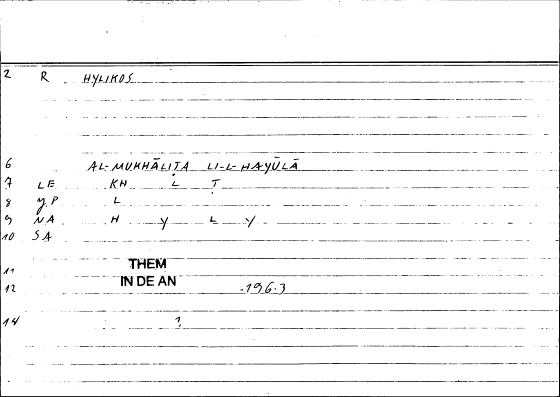 2 R HYLIKOS
6 AL-MUKHĀLIṬA LI-L-HAYŪLĀ
7 LE KH L Ṭ
8 y.P L
9 NA H Y L Y
10 SA
11 THEM
12 IN DE AN .196.3
14 ?